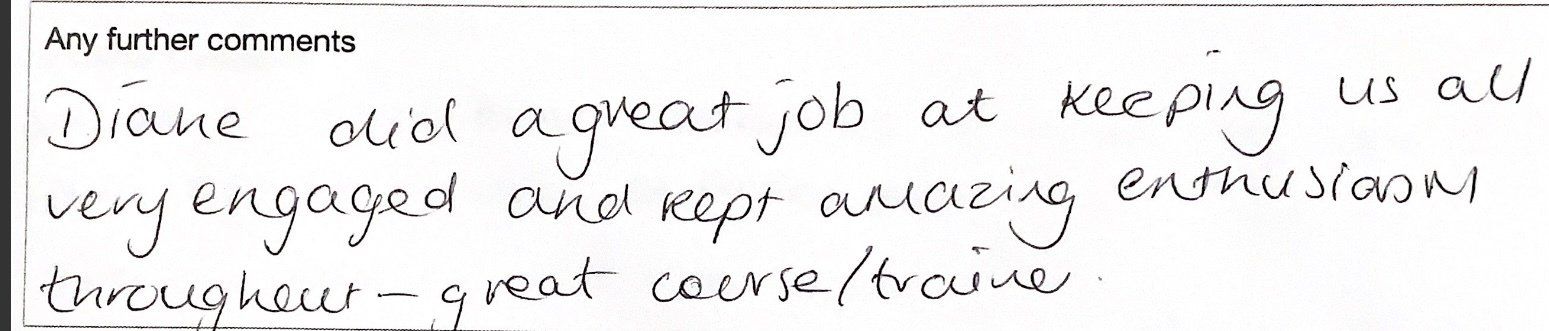 Any further comments
Diane did a great job at keeping us all
very engaged and kept amazing enthusiasm
throughout - great course/traine